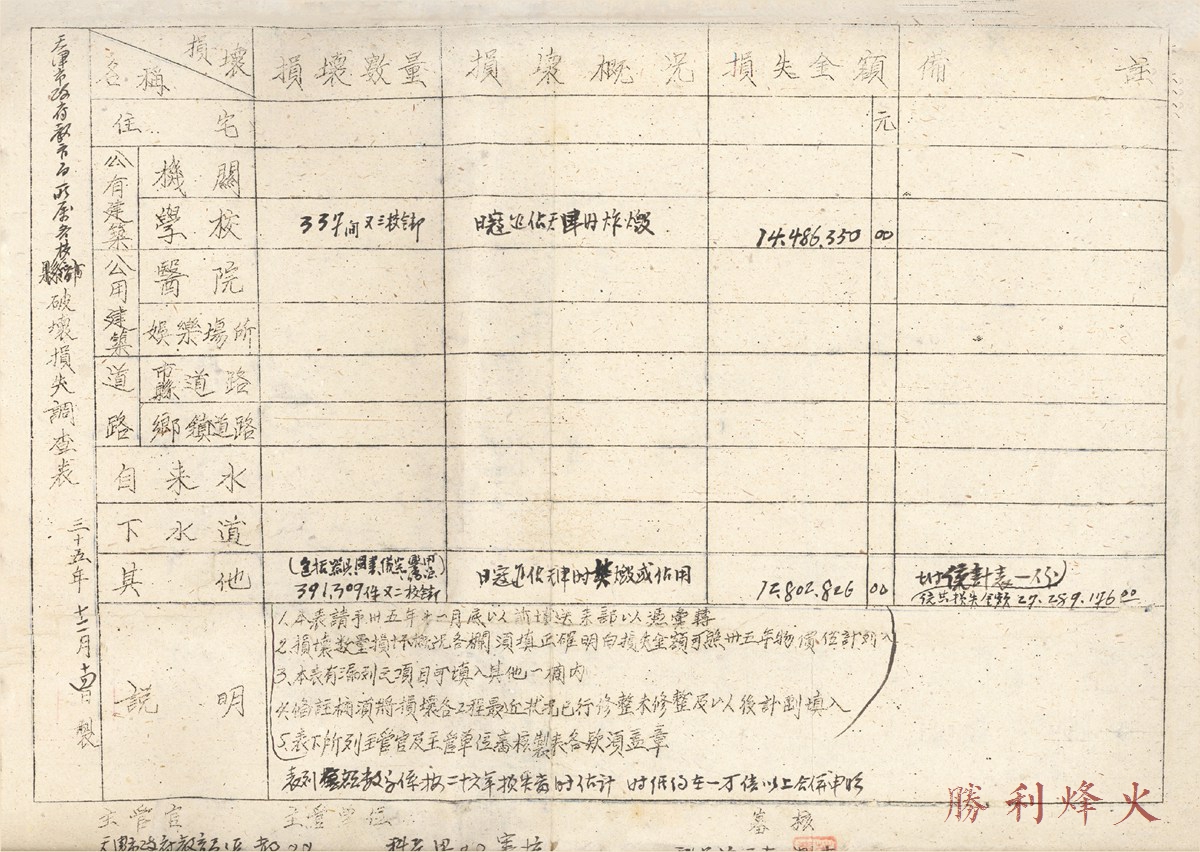 天津市政府教育局所屬各校
破壞損失調查表
三十五年十二月 日製
損壞
名稱
損壞數量
損壞概況
損失金額
備註
元
住宅
公有建築
公用建築
機關
學校
337間又三校全部
日寇進佔天津時炸燬
14.486.350 00
醫院
娛樂場所
道路
市縣道路
鄉鎮道路
自來水
下水道
其他
391,309件又二校全部
日寇進佔天津時焚燬或佔用
12.802.826 00
附統計表一份
總共損失金額27.289.176 00
說明
1.本表請于卅五年十一月底以前填送來部以憑彙轉
2.損壞數量損壞概況各欄須填正確明白損失金額可照卅五年物價估計列入
3.本表有漏列之項目可填入其他一欄內
4.備註欄須將損壞各工程最近狀況已行修整未修整及以後計劃填入
5.表下所列主管官及主管單位審核製表各欵須蓋章
表列 數字係按二十六年損失當時估計 時價約在一万倍以上合併申明
主管官
主管單位
審核
天津市政府教育局
勝利烽火